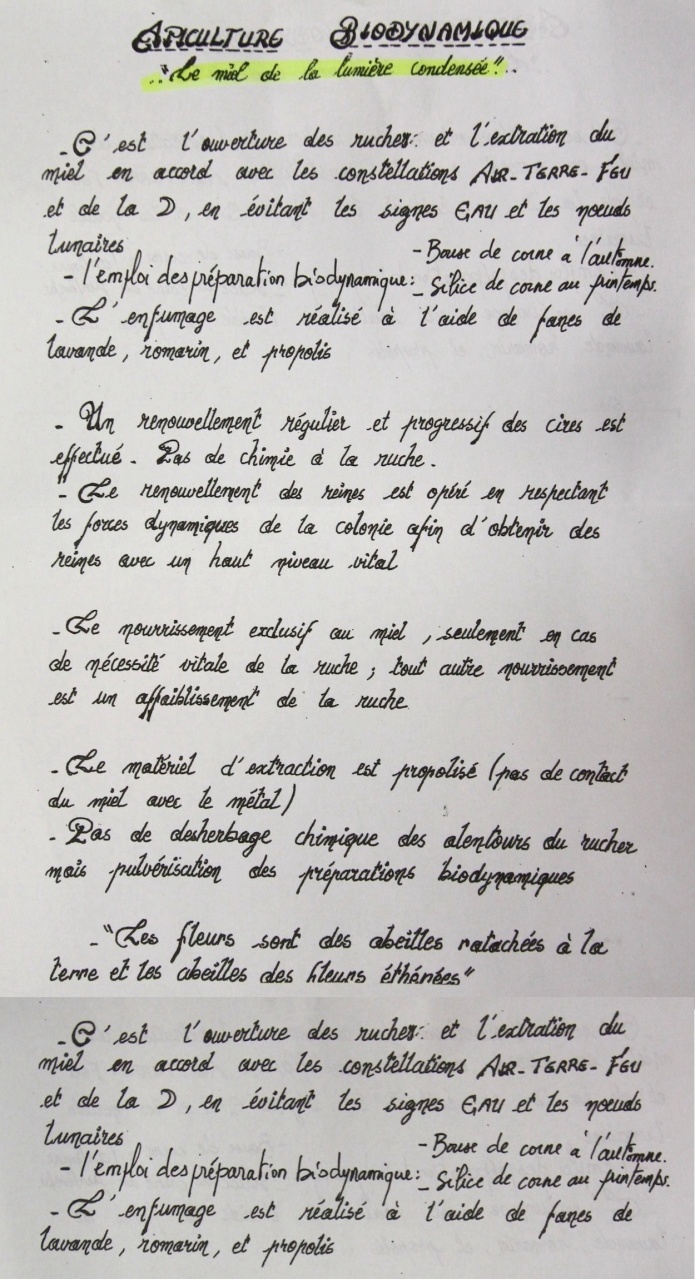 APICULTURE BIODYNAMIQUE
.."Le miel de la lumière condensée"..
- C'est l'ouverture des ruches: et l'extration du
miel en accord avec les constellations AIR-TERRE-FEU
et de la D, en évitant les signes EAU et les noeuds
lunaires
- Bouse de corne à l'automne.
- l'emploi des préparation biodynamique: - Silice de corne au printemps.
- L'enfumage est réalisé à l'aide de fanes de
lavande, romarin, et propolis
- Un renouvellement régulier et progressif des cires est
effectué. Pas de chimie à la ruche.
"- Le renouvellement des reines est opéré en respectant
les forces dynamiques de la colonie afin d'obtenir des
reines avec un haut niveau vital
- Le nourrissement exclusif au miel, seulement en cas
de nécessité vitale de la ruche; tout autre nourrissement
est un affaiblissement de la ruche
- Le matériel d'extraction est propolisé (pas de contact
du miel avec le métal)
- Pas de desherbage chimique des alentours du rucher
mais pulvérisation des préparations biodynamiques
- "Les fleurs sont des abeilles ratachées à la
terre et les abeilles des fleurs éthérées"
- C'est l'ouverture des ruches: et l'extration du
miel en accord avec les constellations AIR-TERRE-FEU
et de la D, en évitant les signes EAU et les noeuds
lunaires
- Bouse de corne à l'automne.
- l'emploi des préparation biodynamique: - Silice de corne au printemps.
- L'enfumage est réalisé à l'aide de fanes de
lavande, romarin, et propolis